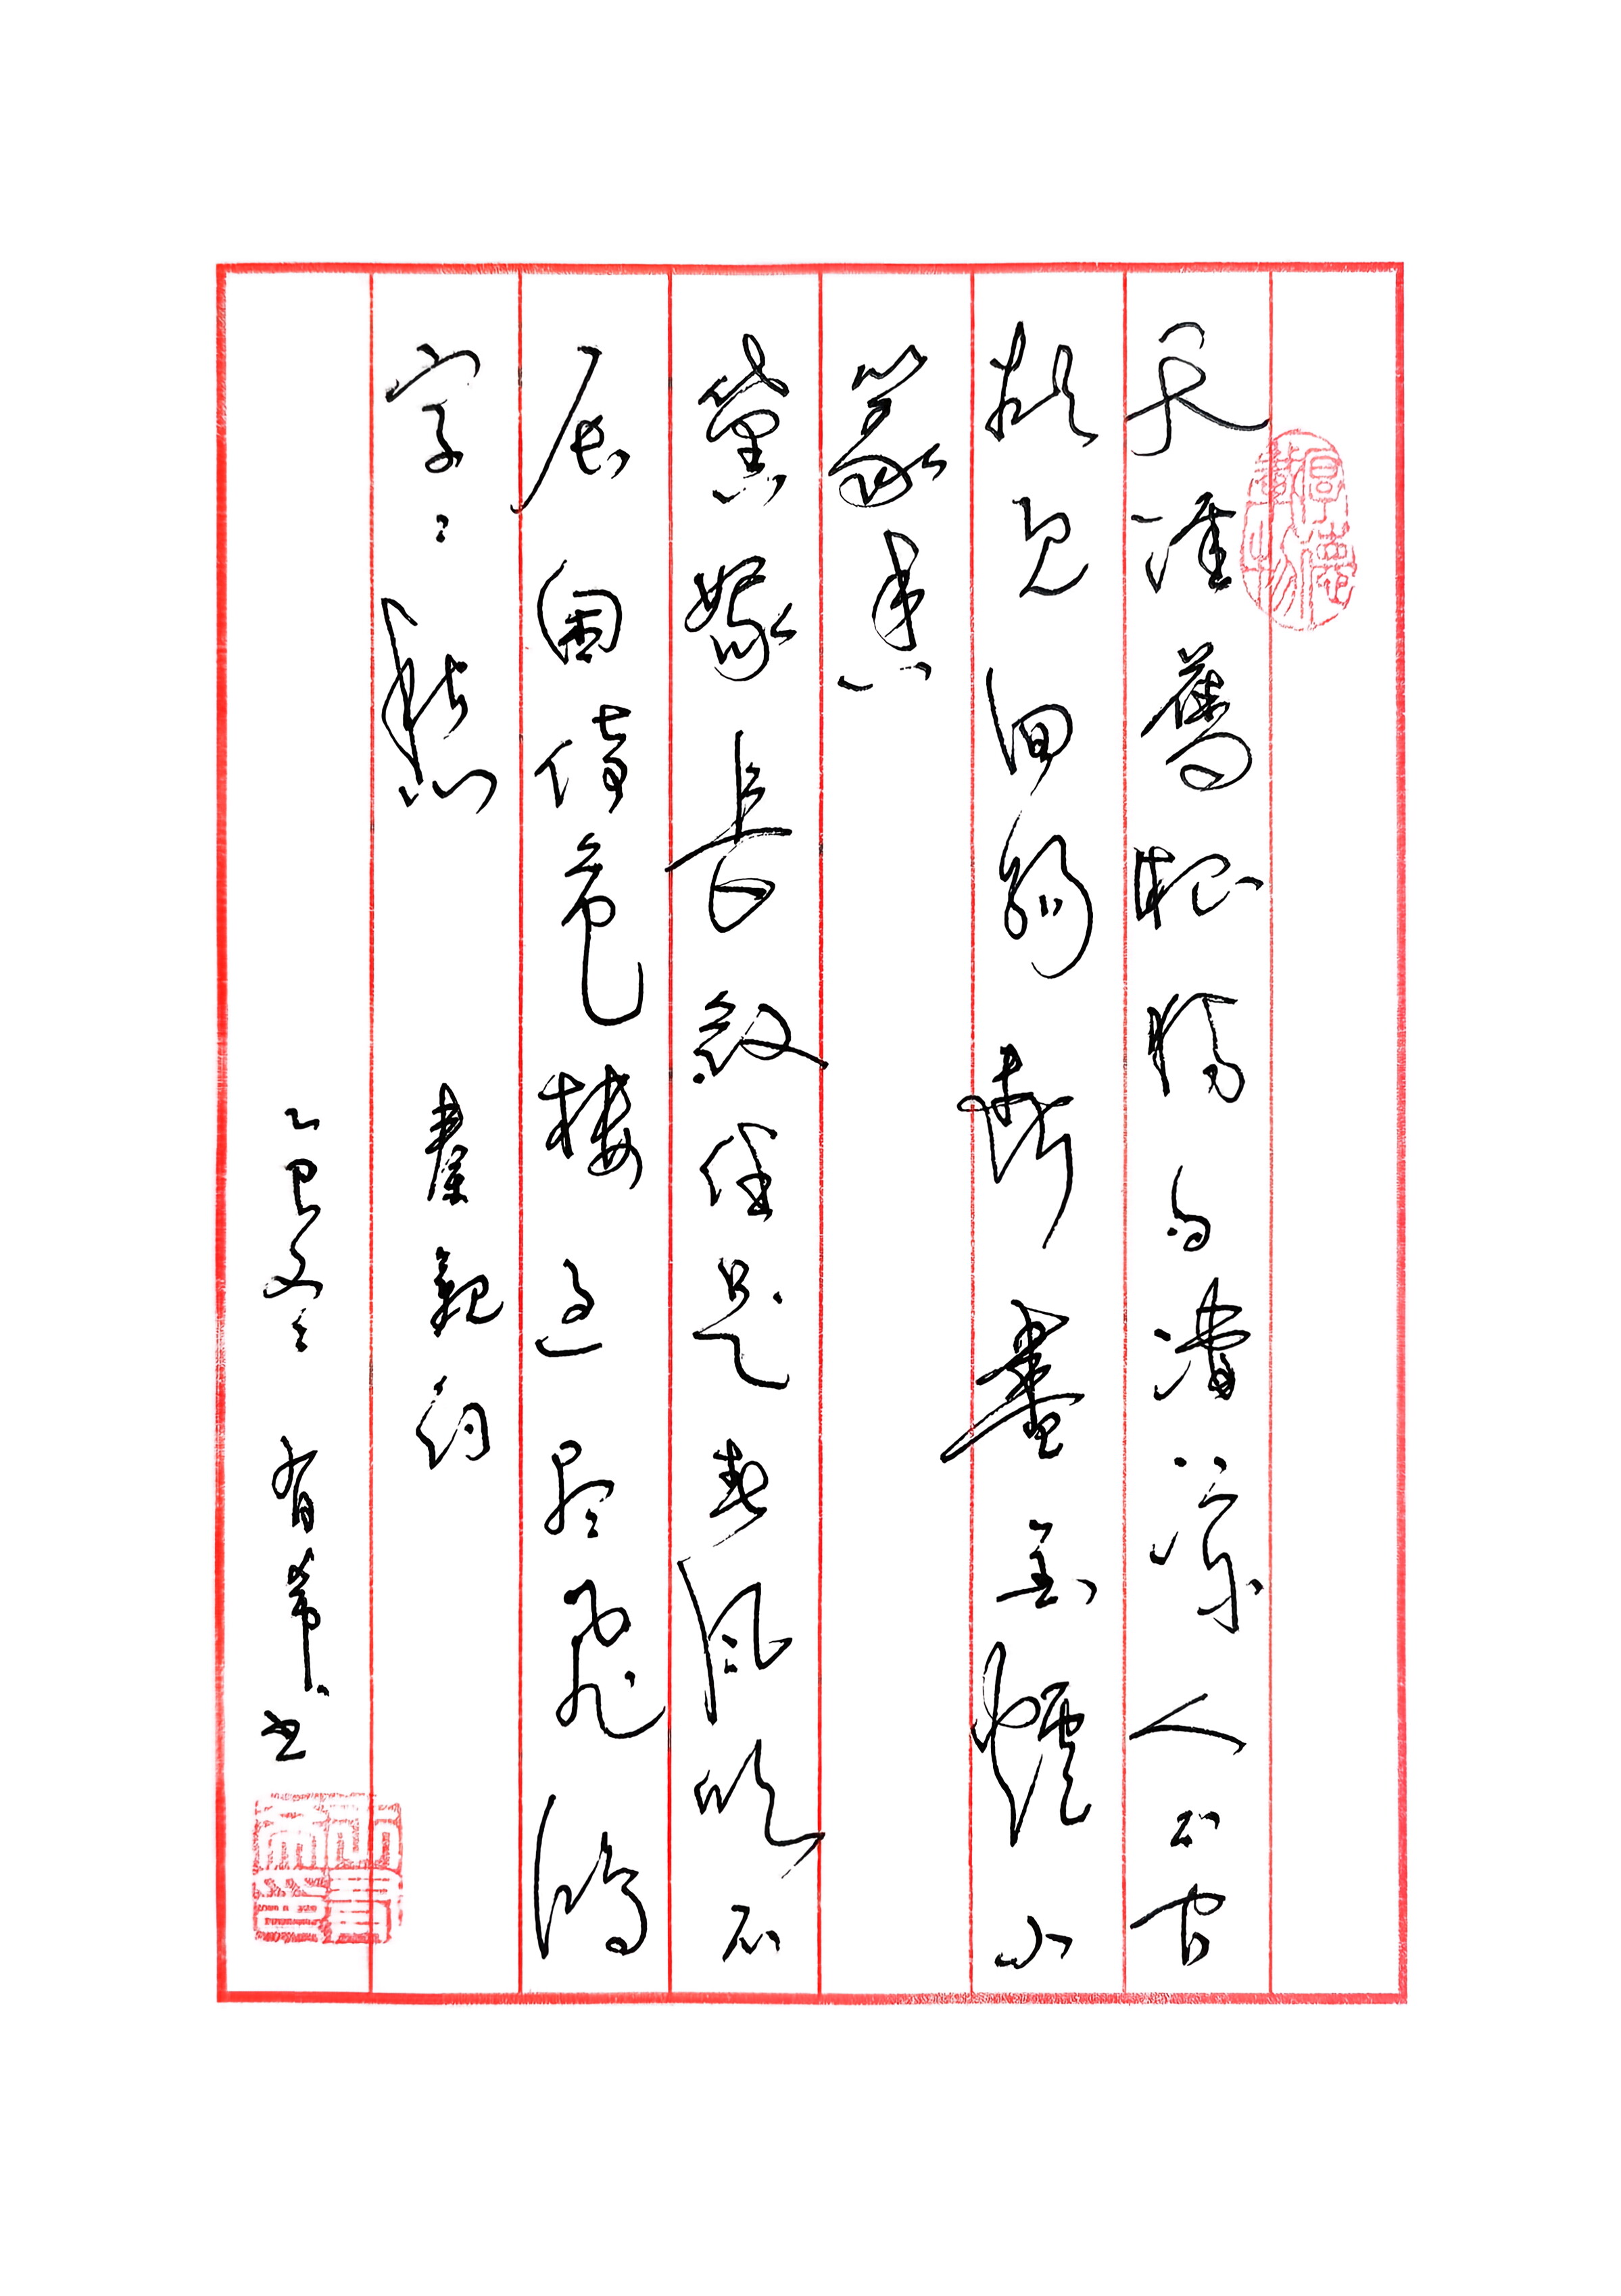 厚德載物
天涯舊恨獨自淒涼人不问
欲見回腸斷盡金爐小
篆香
黛蛾長斂任是春風吹不
展困倚危樓過尽飛鴻
字々愁 秦觀詞
乙巳冬 有希书